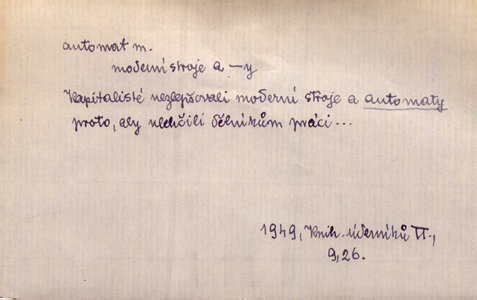 automat m.
moderní stroje a –y
Kapitalisté nezlepšovali moderní stroje a automaty
proto, aby ulehčili dělníkům práci...
1949, Knih. úderníků II.,
9, 26.